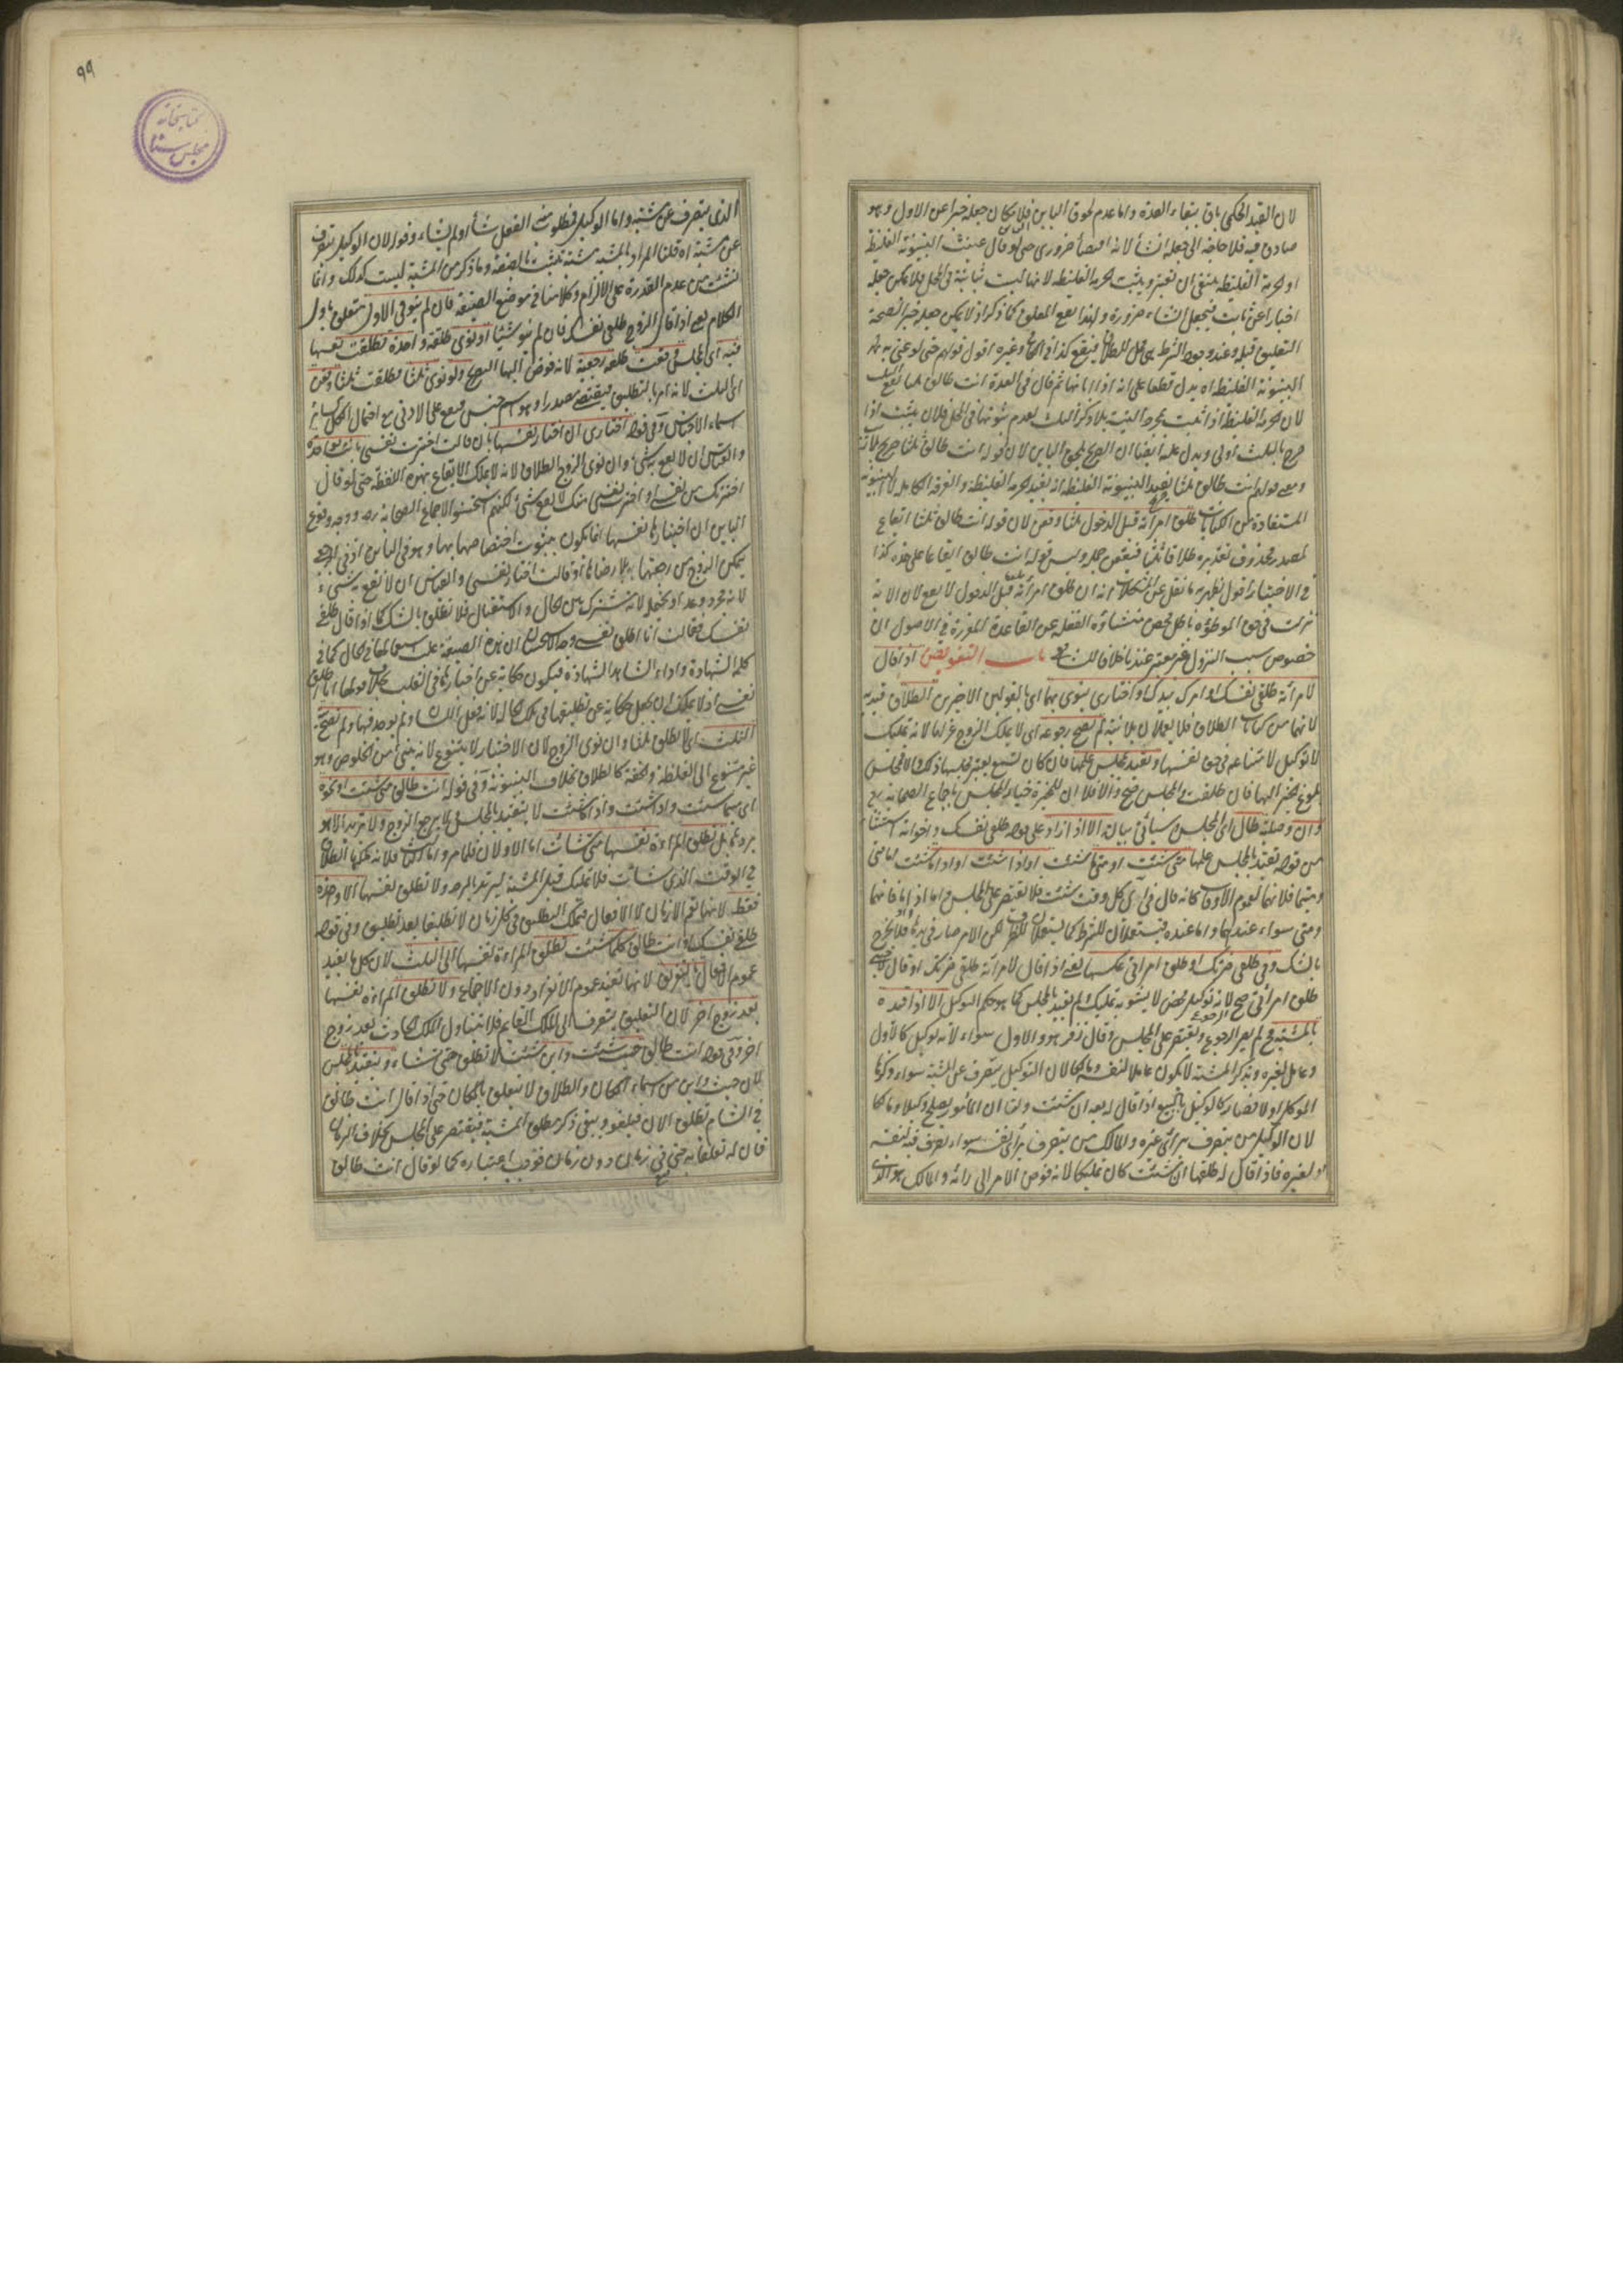 لان القيد الحكمي باق ببقاء العدة واما عدم لحوق الباين فلامكان جعله خبرا عن الاول وهو
صادق فيه فلا حاجة الى جعله انشأ لانه اقتضأ ضروري حتى لو قال عنيت البينونة الغليظة
او الحرمة الغليظة ينبغي ان تعتبر ويثبت الحرمة الغليظة لانها ليست ثابتة في المحل فلا يمكن جعله
اخبارا عن ثابت فيجعل انشاء ضرورة ولهذا يقع المعلق كما ذكر اذ لا يمكن جعله خبرا لصحة
التعليق قبله وعند وجود الشرط هي محل للطلاق فيقع كذا في وغيره اقول قولهم حتى لو عنى به
البينونة الغليظة اه يدل قطعا على انه اذا ابانها ثم قال في العدة انت طالق ثلثا يقع الثلث
لان الحرمة الغليظة اذا ثبتت بمجرد النية بلا ذكر الثلث لعدم ثبوتها في المحل فلان يثبت اذا
صرح بالثلث اولى ويدل عليه ايضا ان الصريح يلحق الباين لان قوله انت طالق ثلثا صريح
ومعنى قولهم انت طالق ثلثا يفيد البينونة الغليظة انه يفيد الحرمة الغليظة والفرقة الكاملة لا البينونة
المستفادة من الكنايات طلق امرأته قبل الدخول ثلثا وقعن لان قوله انت طالق ثلثا ايقاع
لمصدر محذوف تقديره طلاقا ثلثا فيقعن جملة وليس قوله انت طالق ايقاعا على حدة كذا
في الاختيار اقول ظهر به ما نقل عن المشكلات انه ان طلق امرأته قبل الدخول لا يقع لان الاية
نزلت في حق الموطؤة باطل محض منشاؤه الغفلة عن القاعدة المقررة في الاصول ان
خصوص سبب النزول غير معتبر عندنا خلافا للشافعي باب التفويض اذا قال
لامرأته طلقي نفسك او امرك بيدك او اختاري ينوي بهما اي بالقولين الاخيرين الطلاق قيد به
لانهما من كنايات الطلاق فلا يعملان بلا نية لم يصح رجوعه اي لا يملك الزوج عزلها لانه تمليك
لا توكيل لامتناعه في حق نفسها وتقيد بمجلس علمها فان كان تسمع يعتبر مجلسها ذلك والا فمجلس
بلوغ الخبر اليها فان طلقت في المجلس صح والا فلا ان للمخيرة خيار المجلس باجماع الصحابة رضي
وان وصلية طال اي المجلس وسيأتي بيانه الا اذا زاد على قوله طلقي نفسك واخواته استثناء
من قوله تقيد بالمجلس علمها متى شئت او متى ما شئت او اذا شئت او اذا ما شئت اما متى
ومتى ما فلانهما لعموم الاوقات كانه قال في اي كل وقت شئت فلا يقتصر على المجلس واما اذا واذا ما فانهما
ومتى سواء عندهما واما عنده فيستعملان للشرط كما يستعملان للظرف لكن الامر صار في يدها فلا يخرج
بالشك وفي طلقي ضرتك او طلق امراتي عكسها يعني اذا قال لامرأته طلقي ضرتك او قال لاجنبي
طلق امرأتي صح الرجوع لانه توكيل محض لا يشوبه تمليك ولم يقيد بالمجلس كما هو حكم التوكيل الا اذا قيده
بالمشية فح لم يصح الرجوع ويقتصر على المجلس وقال زفر هو والاول سواء لانه توكيل كالاول
وعامل لغيره وبذكر المشية لا يكون عاملا لنفسه ومالكا لان التوكيل يتصرف عن المشية سواء ذكرها
الموكل او لا فصار كالوكيل بالبيع اذا قال له بعه ان شئت ولنا ان المأمور يصلح وكيلا ومالكا
لان الوكيل من يتصرف برأى غيره والمالك من يتصرف برأى نفسه سواء تصرف فيه لنفسه
او لغيره فاذا قال له طلقها ان شئت كان تمليكا لانه فوض الامر الى رائه والمالك هو الذي
٩٩
كتابخانه
مجلس سنا
الذي يتصرف عن مشيته واما الوكيل فمطلوب منه الفعل شأ او لم يشاء وقوله لان الوكيل يتصرف
عن مشية اه قلنا المراد بالمشية مشية تثبت بالصيغة وما ذكر من المشية ليست كذلك وانما
نشئت من عدم القدرة على الالزام وكلامنا في موضع الصيغة فان لم ينو في الاول متعلق باول
الكلام يعني اذا قال الزوج طلقي نفسك فان لم ينو شيئا او نوى طلقة واحدة فطلقت نفسها
فيه اي المجلس وقعت طلقة رجعية لانه فوض اليها الصريح ولو نوى ثلثا فطلقت ثلثا وقعن
اي الثلث لانه امر بالتطليق فيقتضي مصدرا وهو اسم جنس فيقع على الادنى مع احتمال الكل كسائر
اسماء الاجناس وفي قوله اختاري ان اختارت نفسها بان قالت اخترت نفسي بانت بواحدة
والقياس ان لا يقع به شيء وان نوى الزوج الطلاق لانه لا يملك الايقاع بهذه اللفظة حتى لو قال
اخترتك من نفسي او اخترت نفسي منك لا يقع شئ لكنهم استحسنوا لاجماع الصحابة رضي ووجه وقوع
الباين ان اختيارها نفسها انما يكون بثبوت اختصاصها بها وهو في الباين اذ في الرجعي
يتمكن الزوج من رجعتها بلا رضاها او قالت اختار نفسي والقياس ان لا تقع به شيء
لانه مجرد وعد او يحتمله لانه مشترك بين الحال والاستقبال فلا تطلق بالشك كما اذا قال طلقي
نفسك فقالت انا اطلق نفسي وجه الاستحسان ان هذه الصيغة غلب استعمالها في الحال كما في
كلمة الشهادة واداء الشاهد الشهادة فيكون حكاية عن اختيارها في القلب بخلاف قولها انا اطلق
نفسي اذ لا يمكن ان يجعل حكاية عن تطليقها في تلك الحالة لانه فعل اللسان ولم يوجد فيها ولم تصح نية
الثلث اي لا تطلق ثلثا وان نوى الزوج لان الاختيار لا يتنوع لانه ينبئ عن الخلوص وهو
غير متنوع الى الغلظة والخفة كالطلاق بخلاف البينونة وفي قوله انت طالق متى شئت او نحوه
اي متى ما شئت واذا شئت واذا ما شئت لا يتقيد بالمجلس لا يرجع الزوج ولا يرتد الامر
برد بل تطلق المراءة نفسها متى شأت اما الاول لان فلما مر واما الثاني فلانه ملكها الطلاق
في الوقت الذي شأت فلا تمليك قبل المشية ليرتد بالرد ولا تطلق نفسها الا واحدة
فقط لانها تعم الازمان لا الافعال فتملك التطليق في كل زمان لا تطليقا بعد تطليق وفي قوله
طلقي نفسك او انت طالق كلما شئت تطلق المراءة نفسها الى الثلث لان كلما يفيد
عموم الافعال بالتفريق لانها تفيد عموم الانفراد دون الاجتماع ولا تطلق المراءة نفسها
بعد زوج اخر لان التعليق يتصرف الى الملك القايم فلا يتناول الملك الحادث بعد زوج
اخر وفي قوله انت طالق حيث شئت واين شئت لا تطلق حتى تشاء ويتقيد بالمجلس
لان حيث واين من اسماء المكان والطلاق لا يتعلق بالمكان حتى اذا قال انت طالق
في الشام تطلق الان فيلغو ويبقى ذكر مطلق المشية فيقتصر على المجلس بخلاف الزمان
فان له تعلقا به حتى يقع في زمان دون زمان فوجب اعتباره كما لو قال انت طالق